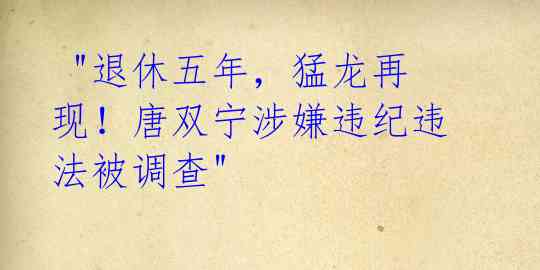 "退休五年，猛龙再
现！唐双宁涉嫌违纪违
法被调查"